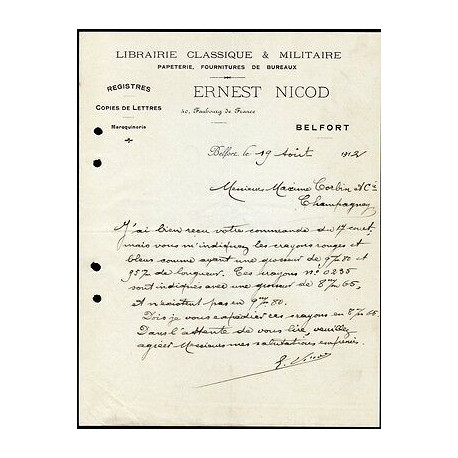 LIBRAIRIE CLASSIQUE & MILITAIRE
PAPETERIE, FOURNITURES DE BUREAUX
REGISTRES
COPIES DE LETTRES
Maroquinerie
ERNEST NICOD
40, Faubourg de France
BELFORT
Belfort, le 19 Août 1912
Messieurs Maxime Corbin & Cie
Champagney
J'ai bien reçu votre commande du 17 court
mais vous m'indiquez les crayons rouges et
bleus comme ayant une grosseur de 9mm80 et
de longueur. Ces crayons no 0235
sont indiqués avec une grosseur de 8mm65.
et n'existent pas en 9mm80.
Dois je vous expédier ces crayons en 8mm65.
Dans l'attente de vous lire, veuillez
agréer Messieurs mes salutations empressées.
E. Nicod